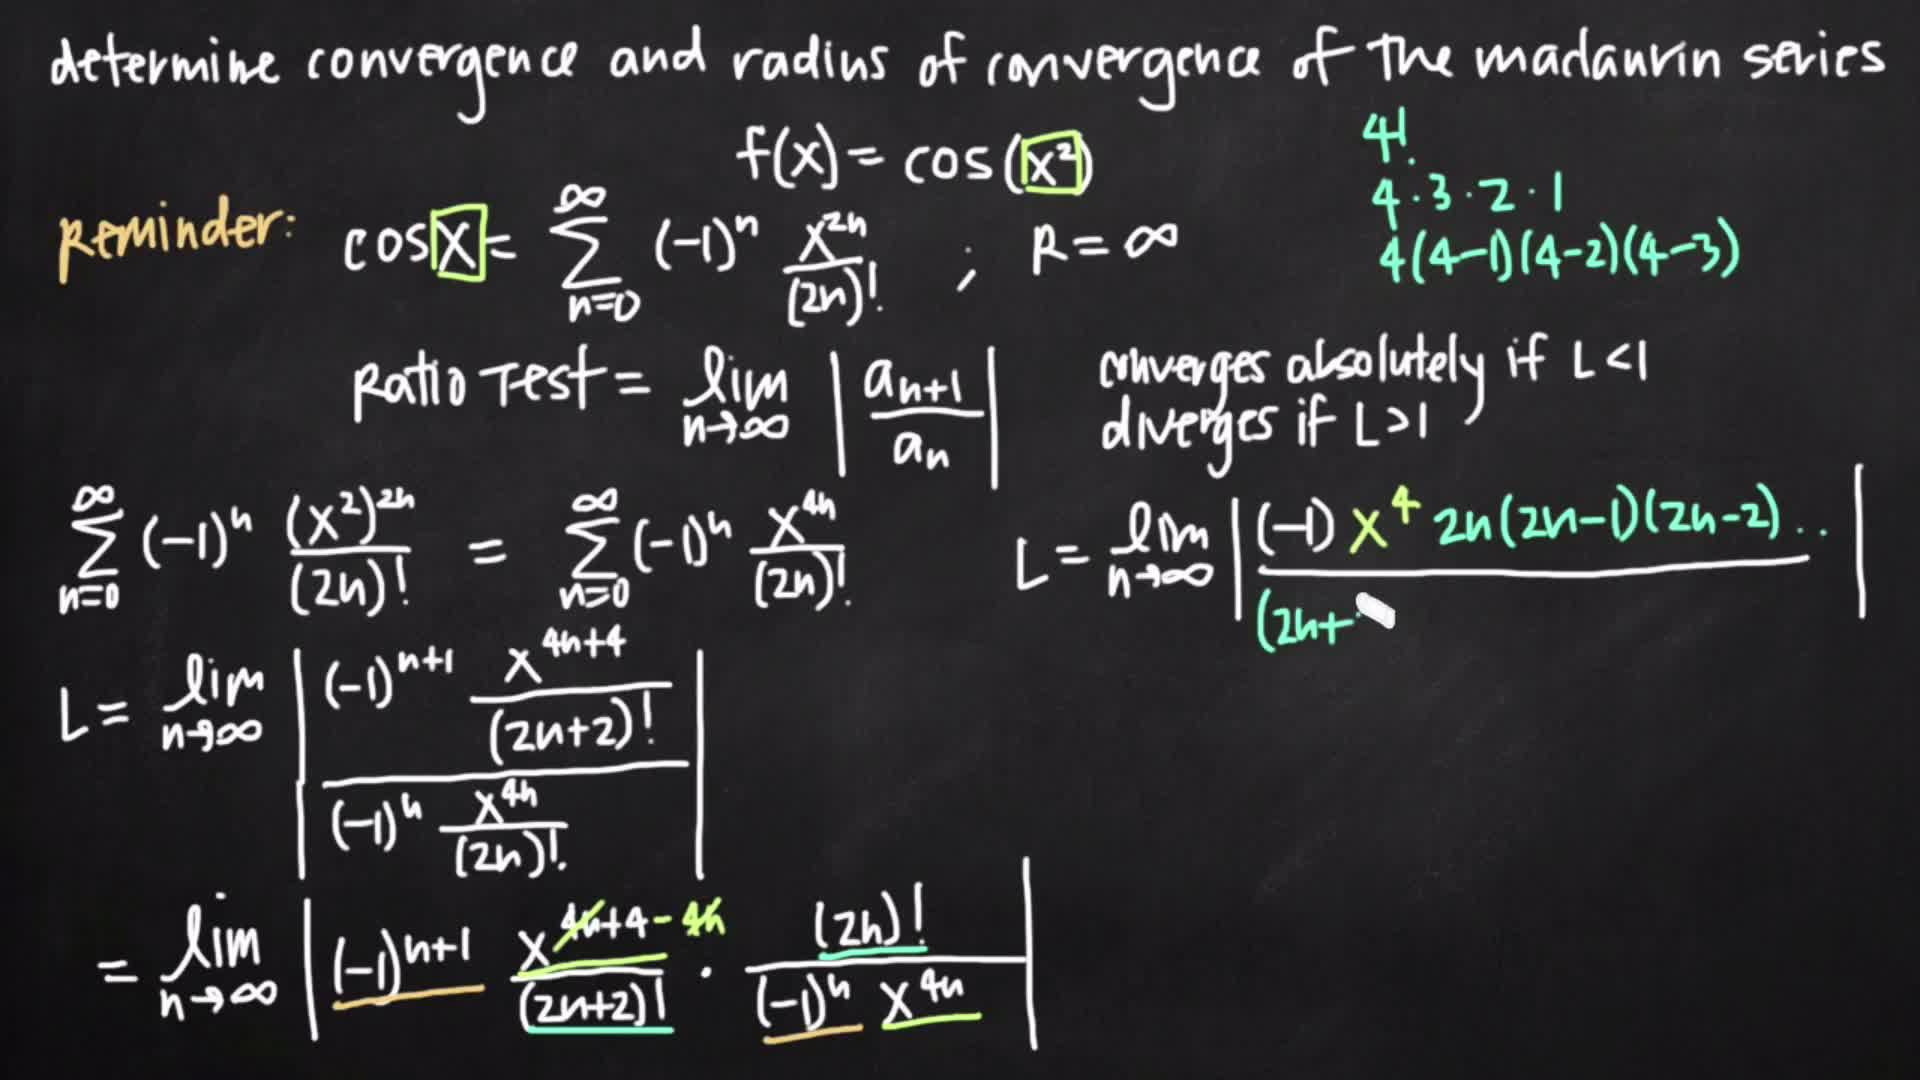 determine convergence and radius of convergence of the maclaurin series
f(x) = cos(x²)
4!
4·3·2·1
4(4-1)(4-2)(4-3)
Reminder: cos x = ∑_{n=0}^{∞} (-1)^n x^{2n}/(2n)! ; R = ∞
Ratio Test = lim_{n→∞} | a_{n+1}/a_n |
converges absolutely if L<1
diverges if L>1
∑_{n=0}^{∞} (-1)^n (x²)^{2n}/(2n)! = ∑_{n=0}^{∞} (-1)^n x^{4n}/(2n)!
L = lim_{n→∞} | (-1)^{n+1} x^{4n+4}/(2n+2)! / (-1)^n x^{4n}/(2n)! |
= lim_{n→∞} | (-1)^{n+1} x^{4n+4-4n}/(2n+2)! · (2n)!/(-1)^n x^{4n} |
L = lim_{n→∞} | (-1) x^4 2n(2n-1)(2n-2)... / (2n+ |